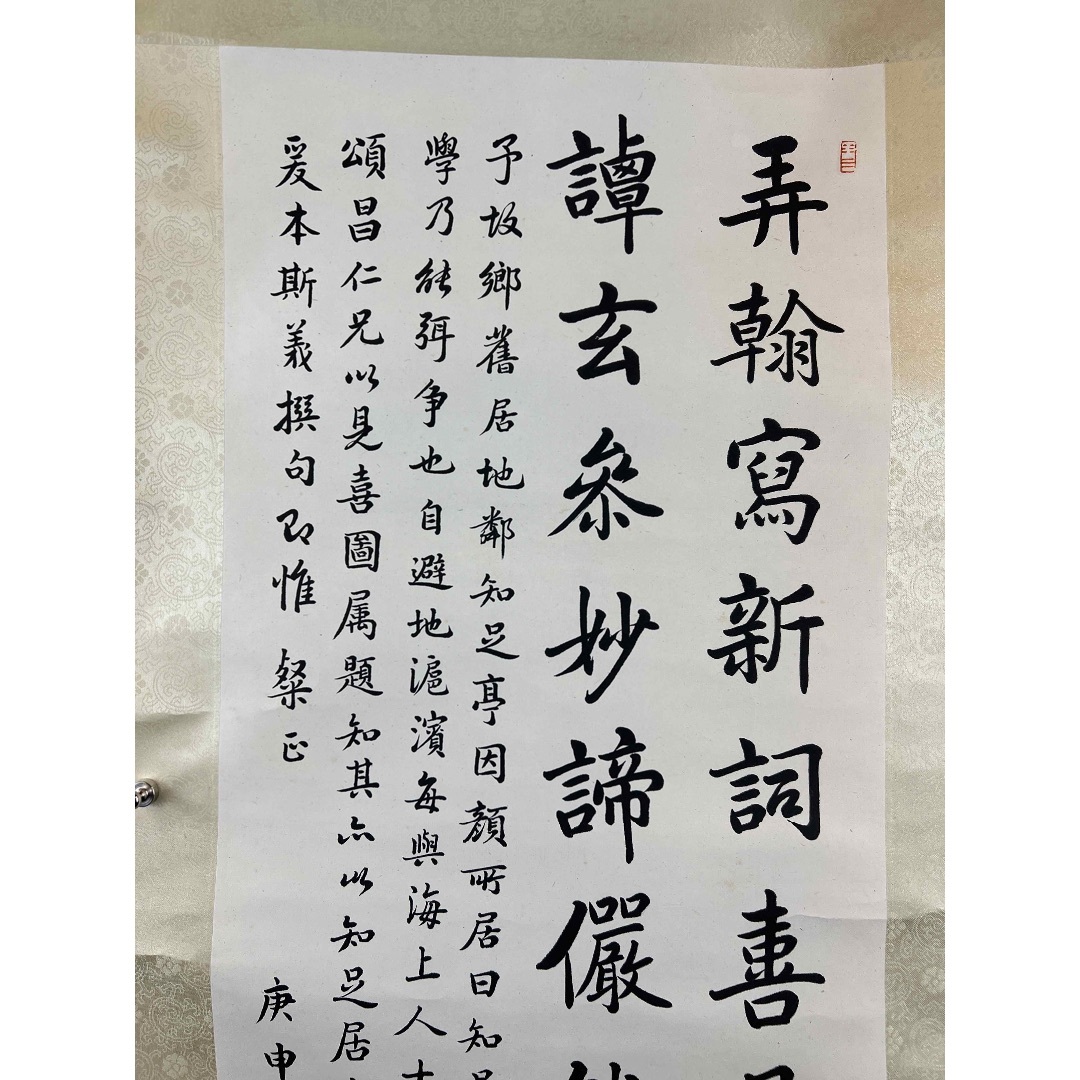 弄翰寫新詞喜
譚玄參妙諦儼
予故鄉舊居地鄰知足亭因顏所居曰知足
學乃能弭争也自避地滬濱每與海上人
頌昌仁兄以見喜圖属題知其亦以知足居
爰本斯義撰句即惟粲正
庚申